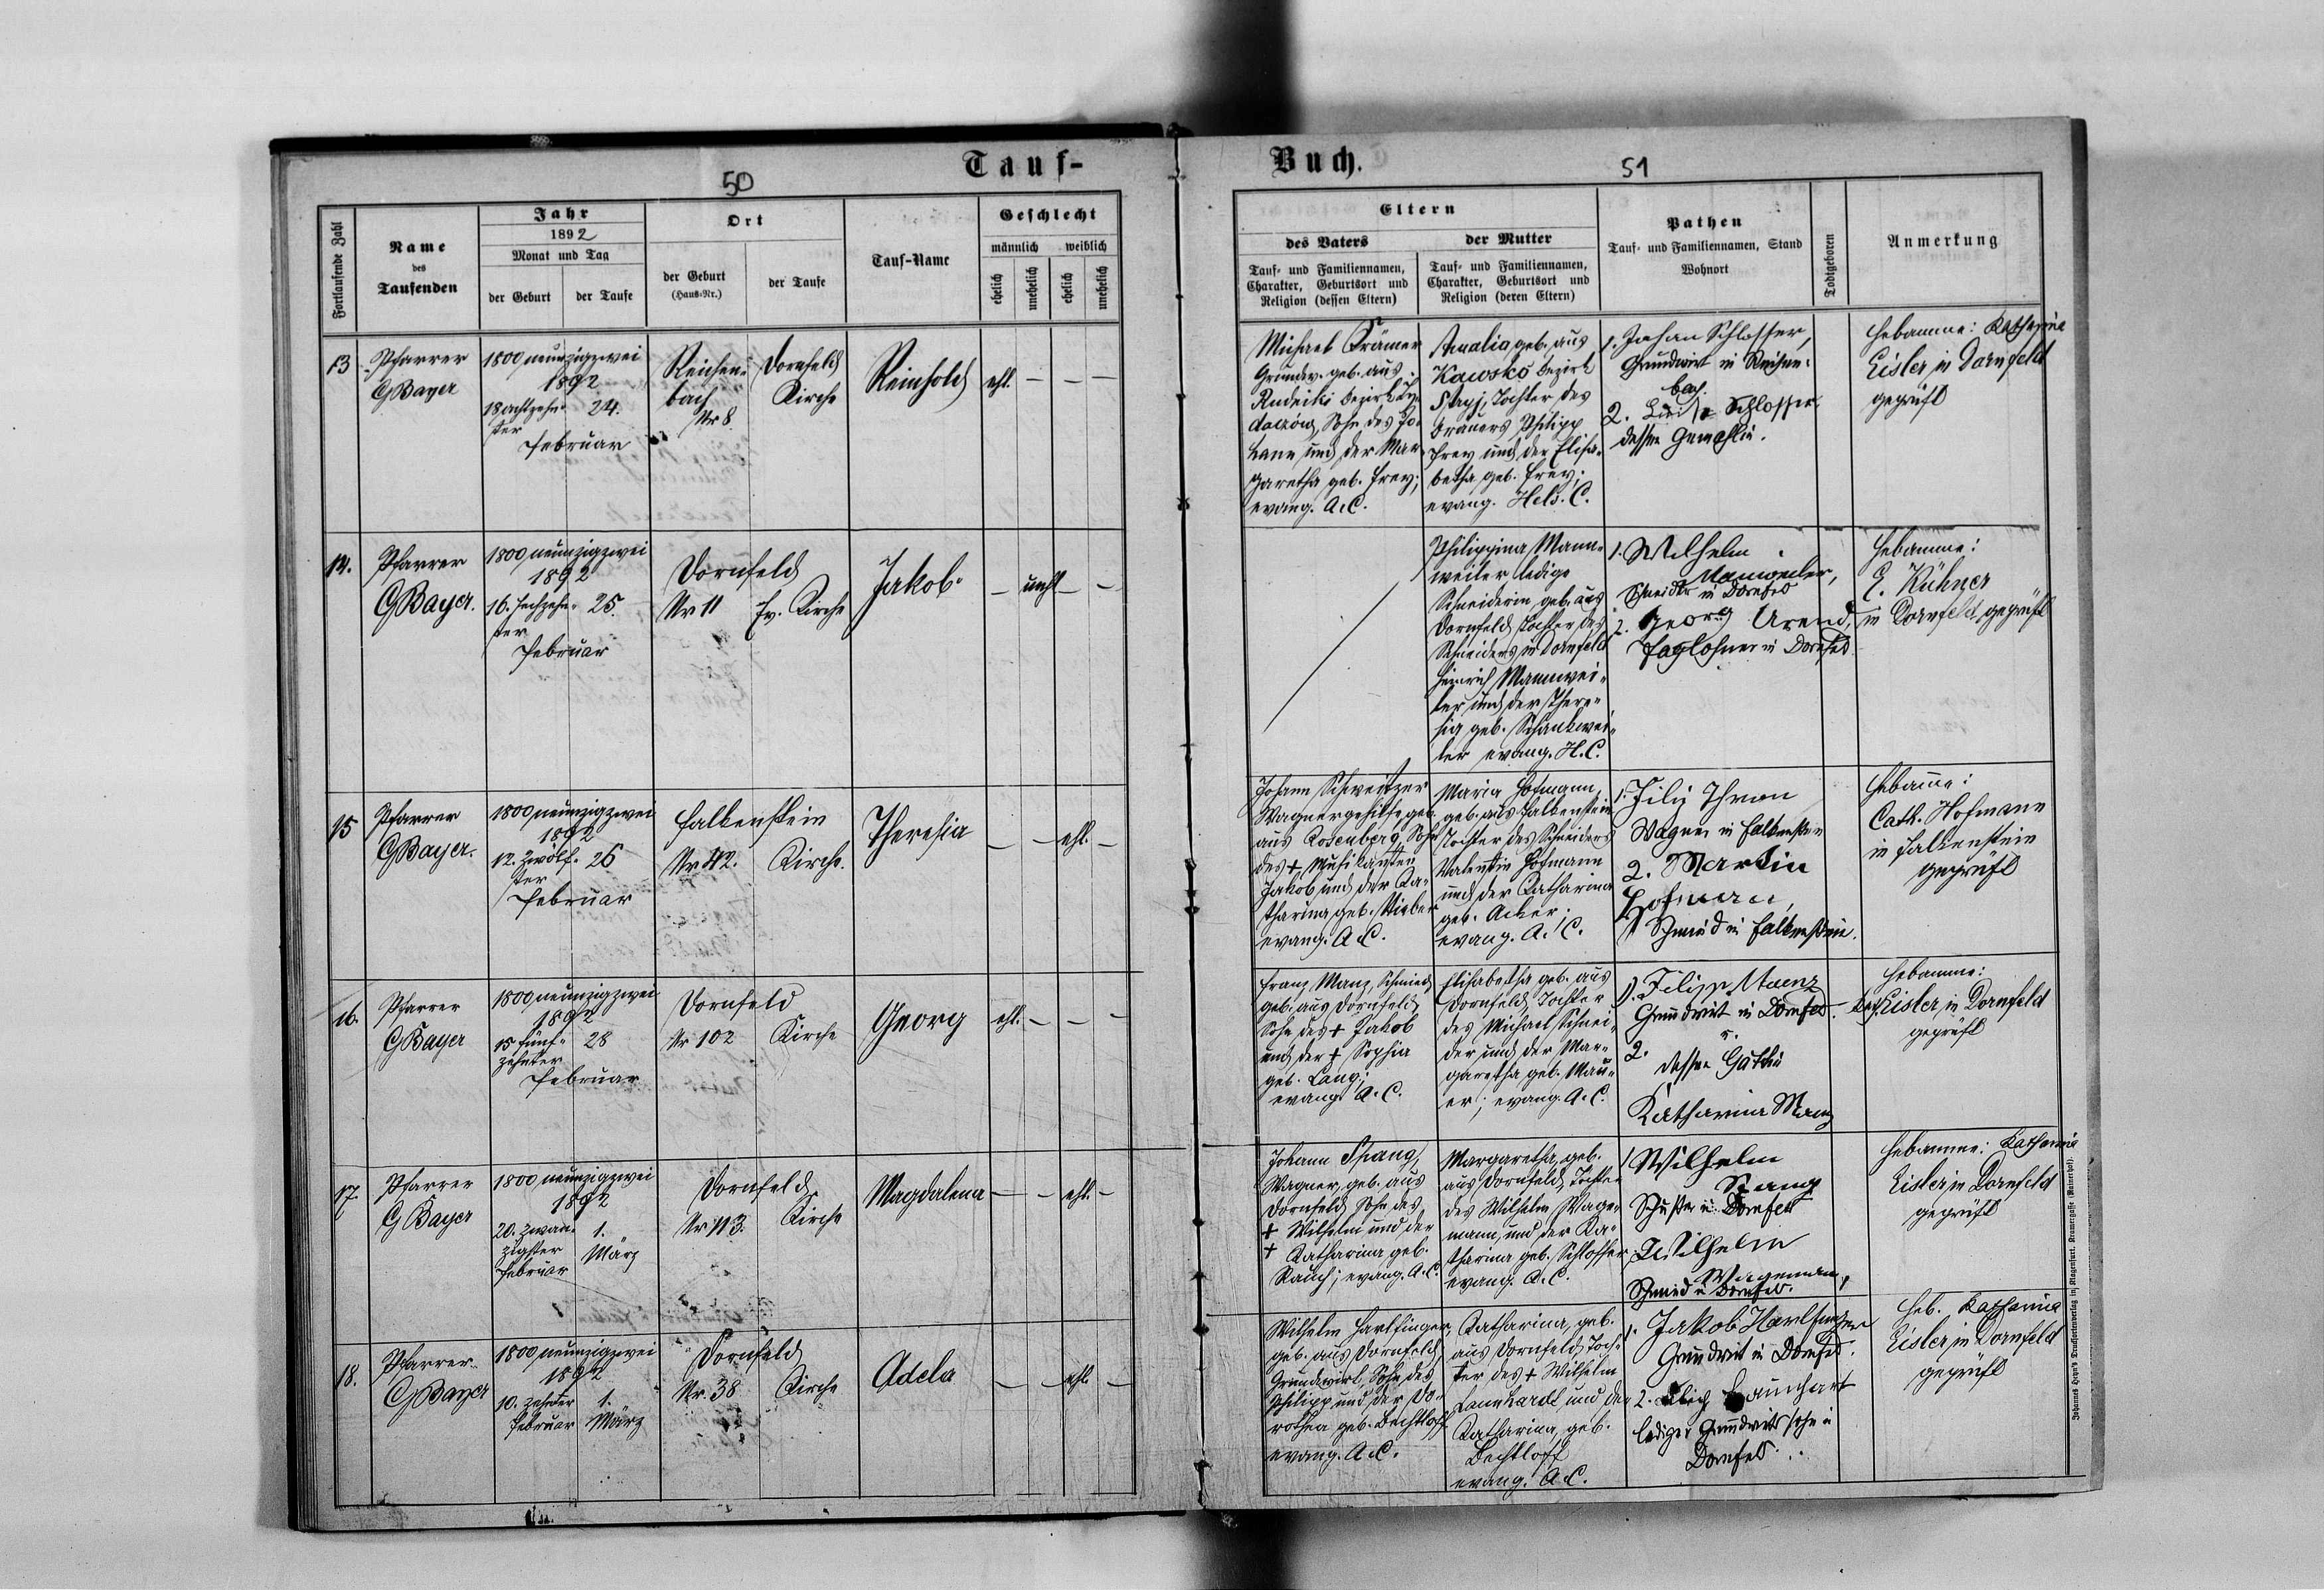 Tauf-
50
Fortlaufende Zahl
Name
des
Taufenden
Jahr
1892
Monat und Tag
der Geburt
der Taufe
Ort
der Geburt
(Haus-Nr.)
der Taufe
Tauf-Name
Geschlecht
männlich
weiblich
ehelich
unehelich
ehelich
unehelich
13
Pfarrer
GBayer
1800 neunzigzwei
1892
18 achtzehn-
ter
24.
Februar
Reichen-
bach
Nr 8
Dornfeld
Kirche
Reinhold
ehl. — — —
14.
Pfarrer
GBayer.
1800 neunzigzwei
1892
16. sechzehn-
ter
25.
Februar
Dornfeld
Nr 11
Ev. Kirche
Jakob
— unehl. — —
15
Pfarrer
GBayer.
1800 neunzigzwei
1892
12. zwölf-
ter
26
Februar
Falkenstein
Nr 42.
Kirche.
Theresia
— — ehl. —
16.
Pfarrer
GBayer
1800 neunzigzwei
1892
15 fünf-
zehnter
28
Februar
Dornfeld
Nr 102
Kirche
Georg
ehl. — — —
17.
Pfarrer
GBayer
1800 neunzigzwei
1892
20. zwan-
zigster
Februar
1.
März
Dornfeld
Nr 113.
Kirche
Magdalena
— — ehl. —
18.
Pfarrer
GBayer
1800 neunzigzwei
1892
10. zehnter
Februar
1.
März
Dornfeld
Nr. 38
Kirche
Adela
— — ehl. —
Buch.
51
Eltern
des Vaters
Tauf- und Familiennamen,
Charakter, Geburtsort und
Religion (dessen Eltern)
der Mutter
Tauf- und Familiennamen,
Charakter, Geburtsort und
Religion (deren Eltern)
Pathen
Tauf- und Familiennamen, Stand
Wohnort
Todtgeboren
Anmerkung
Michael Krämer
Grundw. geb. aus
Rudniki Bezirk Ży-
daczów, Sohn des Jo-
hann und der Mar-
garetha geb. Frey;
evang. A.C.
Amalia geb. aus
Kawsko Bezirk
Stryj, Tochter des
Bräuers Philipp
Frey und der Elisa-
betha geb. Frey;
evang. Helv. C.
1. Johan Schlosser,
Grundwirt in Reichen-
bach.
2. Schlosser
dessen Gemahlin.
Hebamme: Katharina
Eisler in Dornfeld
geprüft
Philippina Mann-
weiler ledige
Schneiderin, geb. aus
Dornfeld, Tochter des
Schneiders in Dornfeld
Heinrich Mannwei-
ler und der There-
sia geb. Schankwei-
ler evang. H.C.
1. Wilhelm
Manweiler,
Schneider in Dornfeld
2. Georg Arend,
Taglohner in Dornfeld
Hebamme:
E. Kühner
in Dornfeld, geprüft
Johann Schweitzer
Wagnergehilfe, geb.
aus Rosenberg, Sohn
des +, Musikanten
Jakob und der Ka-
tharina geb.
evang. A.C.
Maria Hofmann,
geb. aus Falkenstein
Tochter des Schneiders
Valentin Hofmann
und der Katharina
geb. Acker;
evang. A.C.
1. Filip Thron
Wagner in Falkenstein
2. Martin
Hofmann,
Schmied in Falkenstein.
Hebamme:
Cath. Hofmann
in Falkenstein
geprüft
Franz Manz, Schmied
geb. aus Dornfeld,
Sohn des + Jakob
und der + Sophia
geb. Lang;
evang. A.C.
Elisabetha geb. aus
Dornfeld, Tochter
des Michael Schnei-
der und der Mar-
garetha geb. Mau-
er; evang. A.C.
1. Filipp Manz
Grundwirt in Dornfeld.
u.
2.
dessen Gattin
Katharina Manz
Hebamme:
Kath. Eisler in Dornfeld
geprüft
Johann Spang,
Wagner, geb. aus
Dornfeld, Sohn des
+ Wilhelm und der
+ Katharina geb.
Rauch; evang. A.C.
Margaretha, geb.
aus Dornfeld, Tochter
des Wilhelm Wage-
mann, und der Ka-
tharina geb. Schlosser
evang. A.C.
1 Wilhelm
Spang
Schuster in Dornfeld
2. Wilhelm
Wagemann,
Schmied in Dornfeld.
Hebamme: Katharina
Eisler in Dornfeld
geprüft
Wilhelm Hartfinger,
geb. aus Dornfeld,
Grundwirt, Sohn des
Philipp und der Do-
rothea geb. Bechtloff
evang. A.C.
Katharina, geb.
aus Dornfeld, Toch-
ter des + Wilhelm
Launhardt und der
Katharina, geb.
Bechtloff
evang. A.C.
1. Jakob Hartfinger
Grundwirt in Dornfeld.
2. Launhart
lediger Grundwirtssohn in
Dornfeld.
Heb. Katharina
Eisler in Dornfeld
geprüft
Johannes Heyn's Drucksortenverlag in Klagenfurt, Kramergasse (Mainerhof).